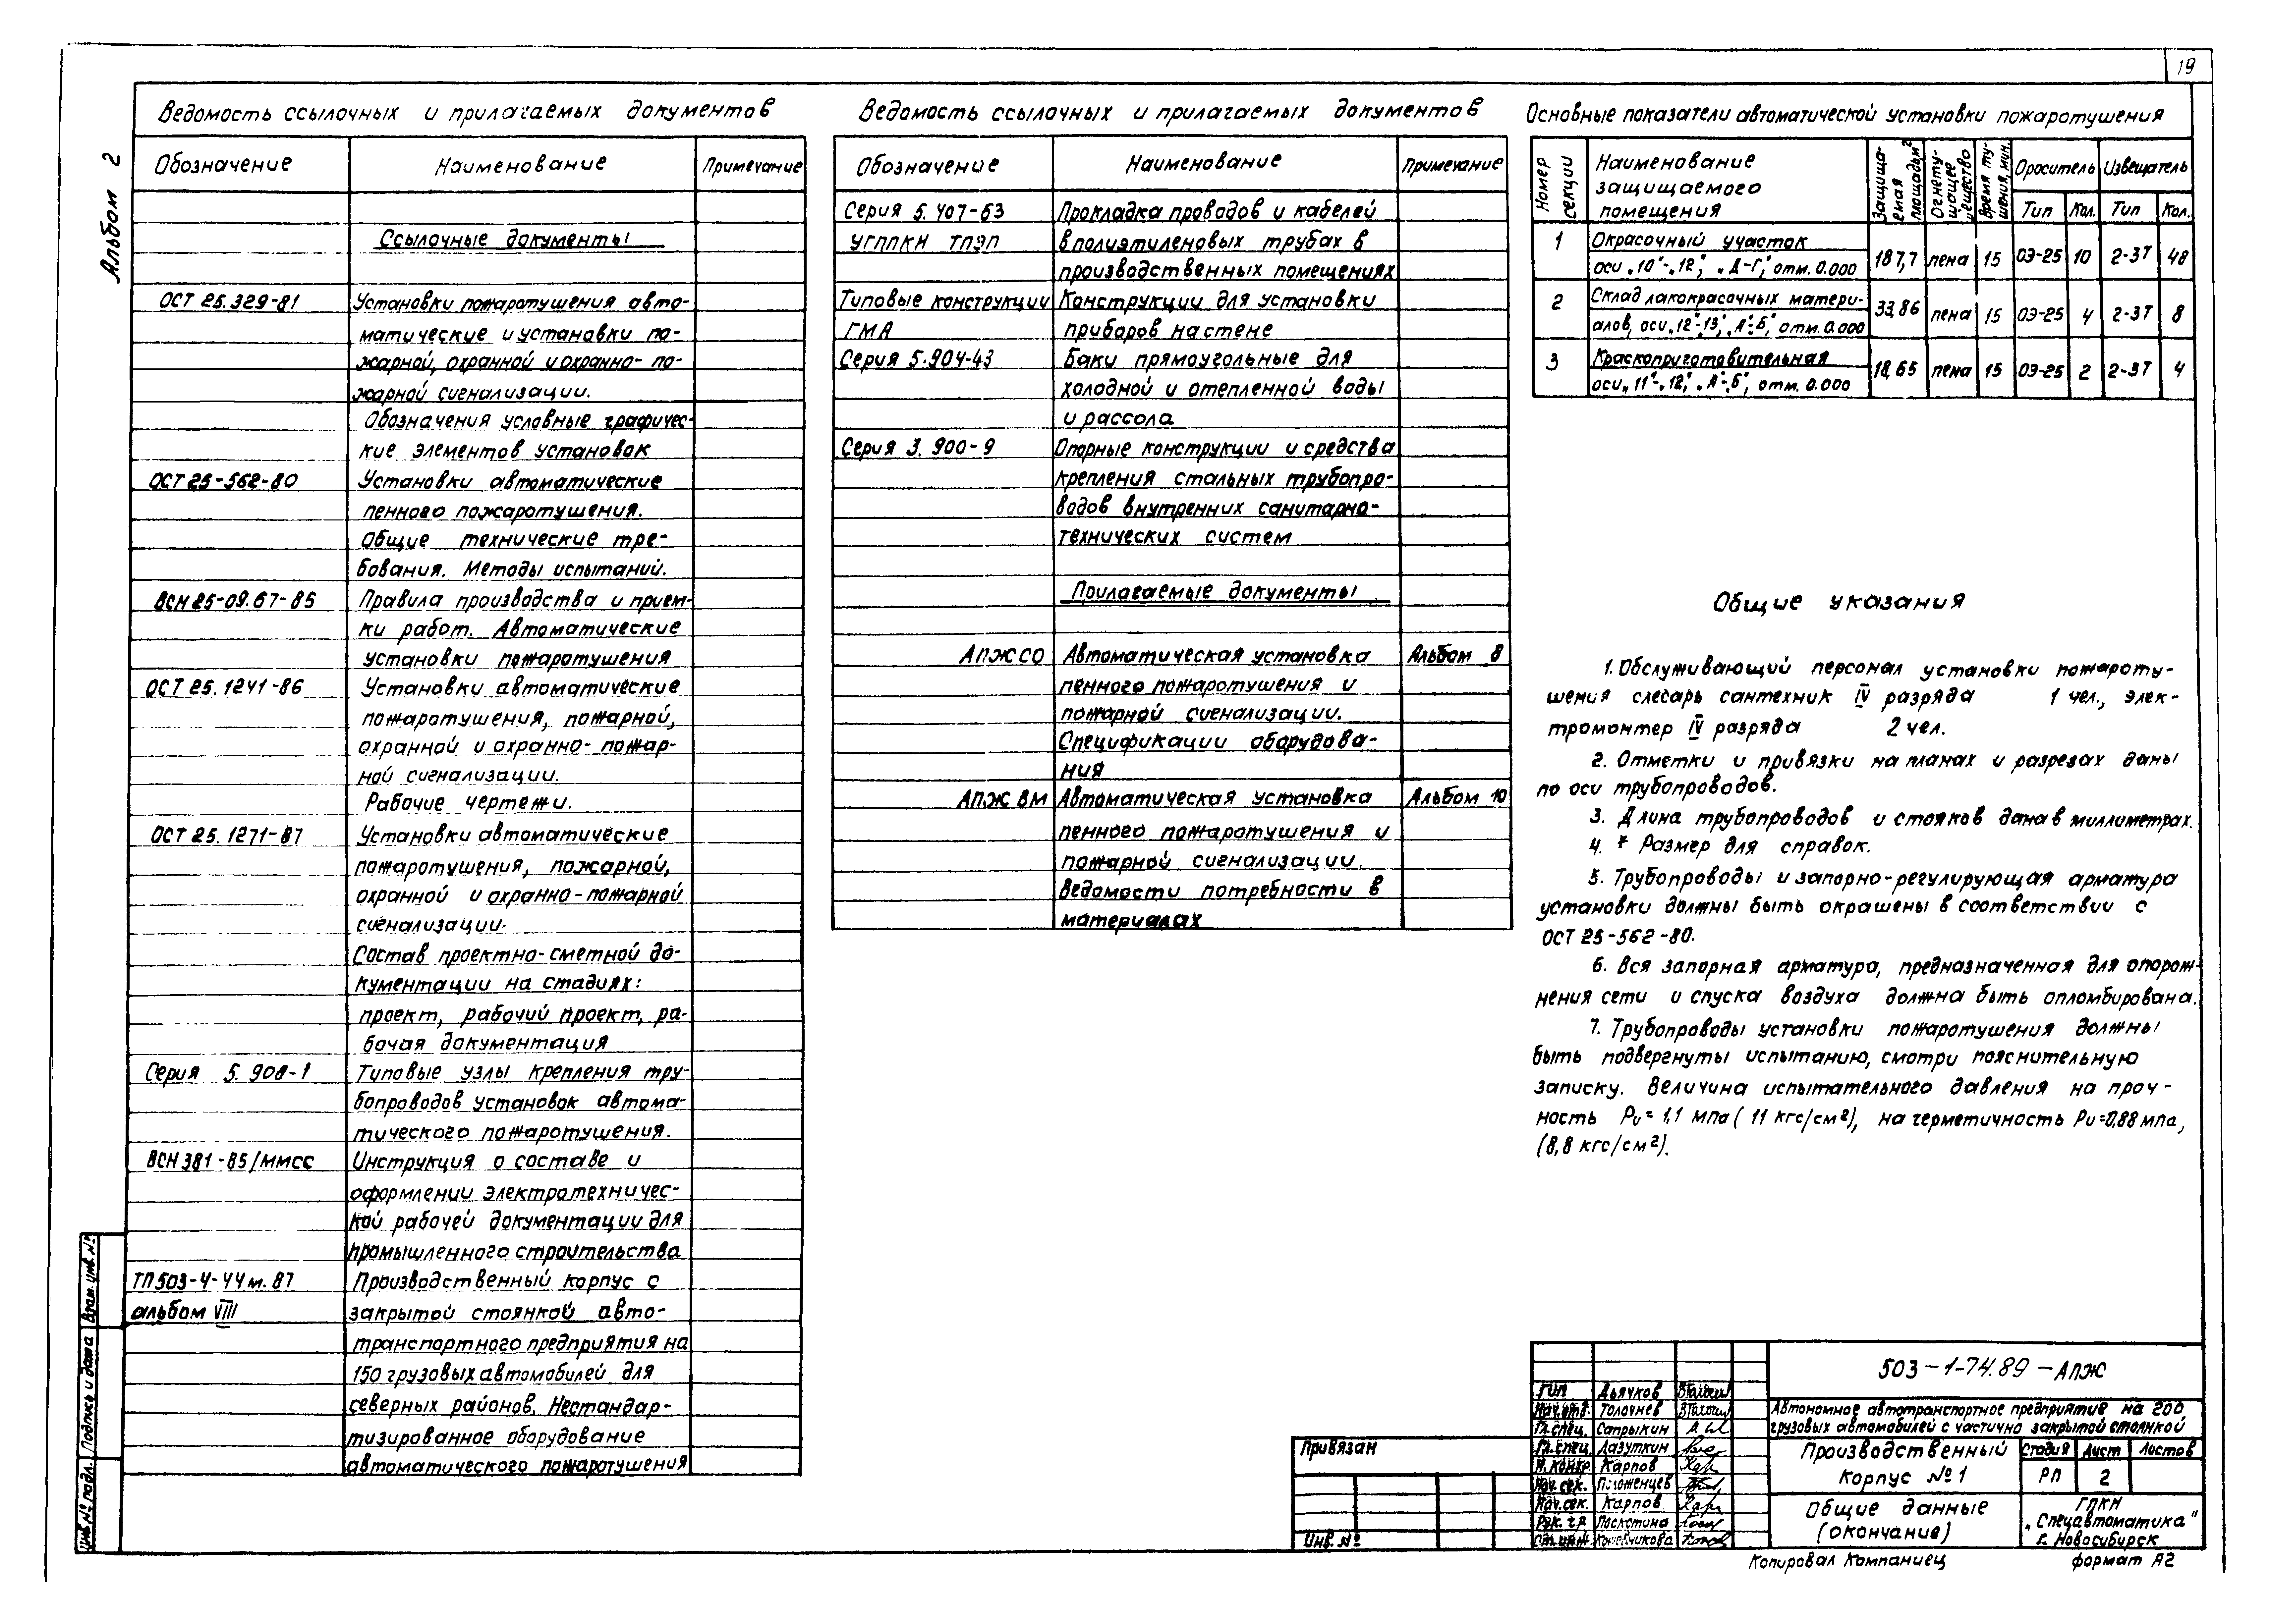 19
Альбом 2
Ведомость ссылочных и прилагаемых документов
Обозначение Наименование Примечание
Ссылочные документы
ОСТ 25.329-81 Установки пожаротушения авто-
матические и установки по-
жарной, охранной и охранно-по-
жарной сигнализации.
Обозначения условные графичес-
кие элементов установок
ОСТ 25-562-80 Установки автоматические
пенного пожаротушения.
Общие технические тре-
бования. Методы испытаний.
ВСН 25-09.67-85 Правила производства и прием-
ки работ. Автоматические
установки пожаротушения
ОСТ 25.1241-86 Установки автоматические
пожаротушения, пожарной,
охранной и охранно-пожар-
ной сигнализации.
Рабочие чертежи.
ОСТ 25.1271-87 Установки автоматические
пожаротушения, пожарной,
охранной и охранно-пожарной
сигнализации.
Состав проектно-сметной до-
кументации на стадиях:
проект, рабочий проект, ра-
бочая документация
Серия 5.908-1 Типовые узлы крепления тру-
бопроводов установок автома-
тического пожаротушения.
ВСН 381-85/ммсс Инструкция о составе и
оформлении электротехничес-
кой рабочей документации для
промышленного строительства
ТП 503-4-44м.87 Производственный корпус с
альбом VIII закрытой стоянкой авто-
транспортного предприятия на
150 грузовых автомобилей для
северных районов. Нестандар-
тизированное оборудование
автоматического пожаротушения
Ведомость ссылочных и прилагаемых документов
Обозначение Наименование Примечание
Серия 5.407-63 Прокладка проводов и кабелей
УГППКН ТПЭП в полиэтиленовых трубах в
производственных помещениях
Типовые конструкции Конструкции для установки
ГМА приборов на стене
Серия 5.904-43 Баки прямоугольные для
холодной и отепленной воды
и рассола
Серия 3.900-9 Опорные конструкции и средства
крепления стальных трубопро-
водов внутренних санитарно-
технических систем
Прилагаемые документы
АПЖ СО Автоматическая установка Альбом 8
пенного пожаротушения и
пожарной сигнализации.
Спецификации оборудова-
ния
АПЖ ВМ Автоматическая установка Альбом 10
пенного пожаротушения и
пожарной сигнализации.
Ведомости потребности в
материалах
Основные показатели автоматической установки пожаротушения
Номер секции Наименование защищаемого помещения Защища-емая площадь м² Огнету-шащее вещество Время ту-шения, мин. Ороситель Извещатель
Тип Кол. Тип Кол.
1 Окрасочный участок
оси „10"-„12", „А-Г", отм. 0.000 187,7 пена 15 ОЭ-25 10 2-3Т 48
2 Склад лакокрасочных матери-
алов, оси „12"-„13", „А"-„Б", отм. 0.000 33,86 пена 15 ОЭ-25 4 2-3Т 8
3 Краскоприготовительная
оси „11"-„12", „А"-„Б", отм. 0.000 18,65 пена 15 ОЭ-25 2 2-3Т 4
Общие указания
1. Обслуживающий персонал установки пожароту-
шения слесарь сантехник IV разряда 1 чел., элек-
тромонтер IV разряда 2 чел.
2. Отметки и привязки на планах и разрезах даны
по оси трубопроводов.
3. Длина трубопроводов и стояков дана в миллиметрах.
4. * Размер для справок.
5. Трубопроводы и запорно-регулирующая арматура
установки должны быть окрашены в соответствии с
ОСТ 25-562-80.
6. Вся запорная арматура, предназначенная для опорож-
нения сети и спуска воздуха должна быть опломбирована.
7. Трубопроводы установки пожаротушения должны
быть подвергнуты испытанию, смотри пояснительную
записку. Величина испытательного давления на проч-
ность Ри = 1,1 мпа (11 кгс/см²), на герметичность Ри=0,88 мпа,
(8,8 кгс/см²).
Инв.№ подл. Подпись и дата Взам. инв. №
Привязан
Инв. №
ГИП Дьячков
Нач.отд. Толочнев
Гл.спец. Сапрыкин
Гл.спец. Лазуткин
Н.контр. Карпов
Нач.сек. Положенцев
Нач.сек. Карпов
Рук.гр. Паскотина
Ст.инж.
503-1-74.89-АПЖ
Автономное автотранспортное предприятие на 200
грузовых автомобилей с частично закрытой стоянкой
Производственный
корпус №1
Стадия Лист Листов
РП 2
Общие данные
(окончание)
ГПКН
„Спецавтоматика"
г. Новосибирск
Копировал Компаниец формат А2